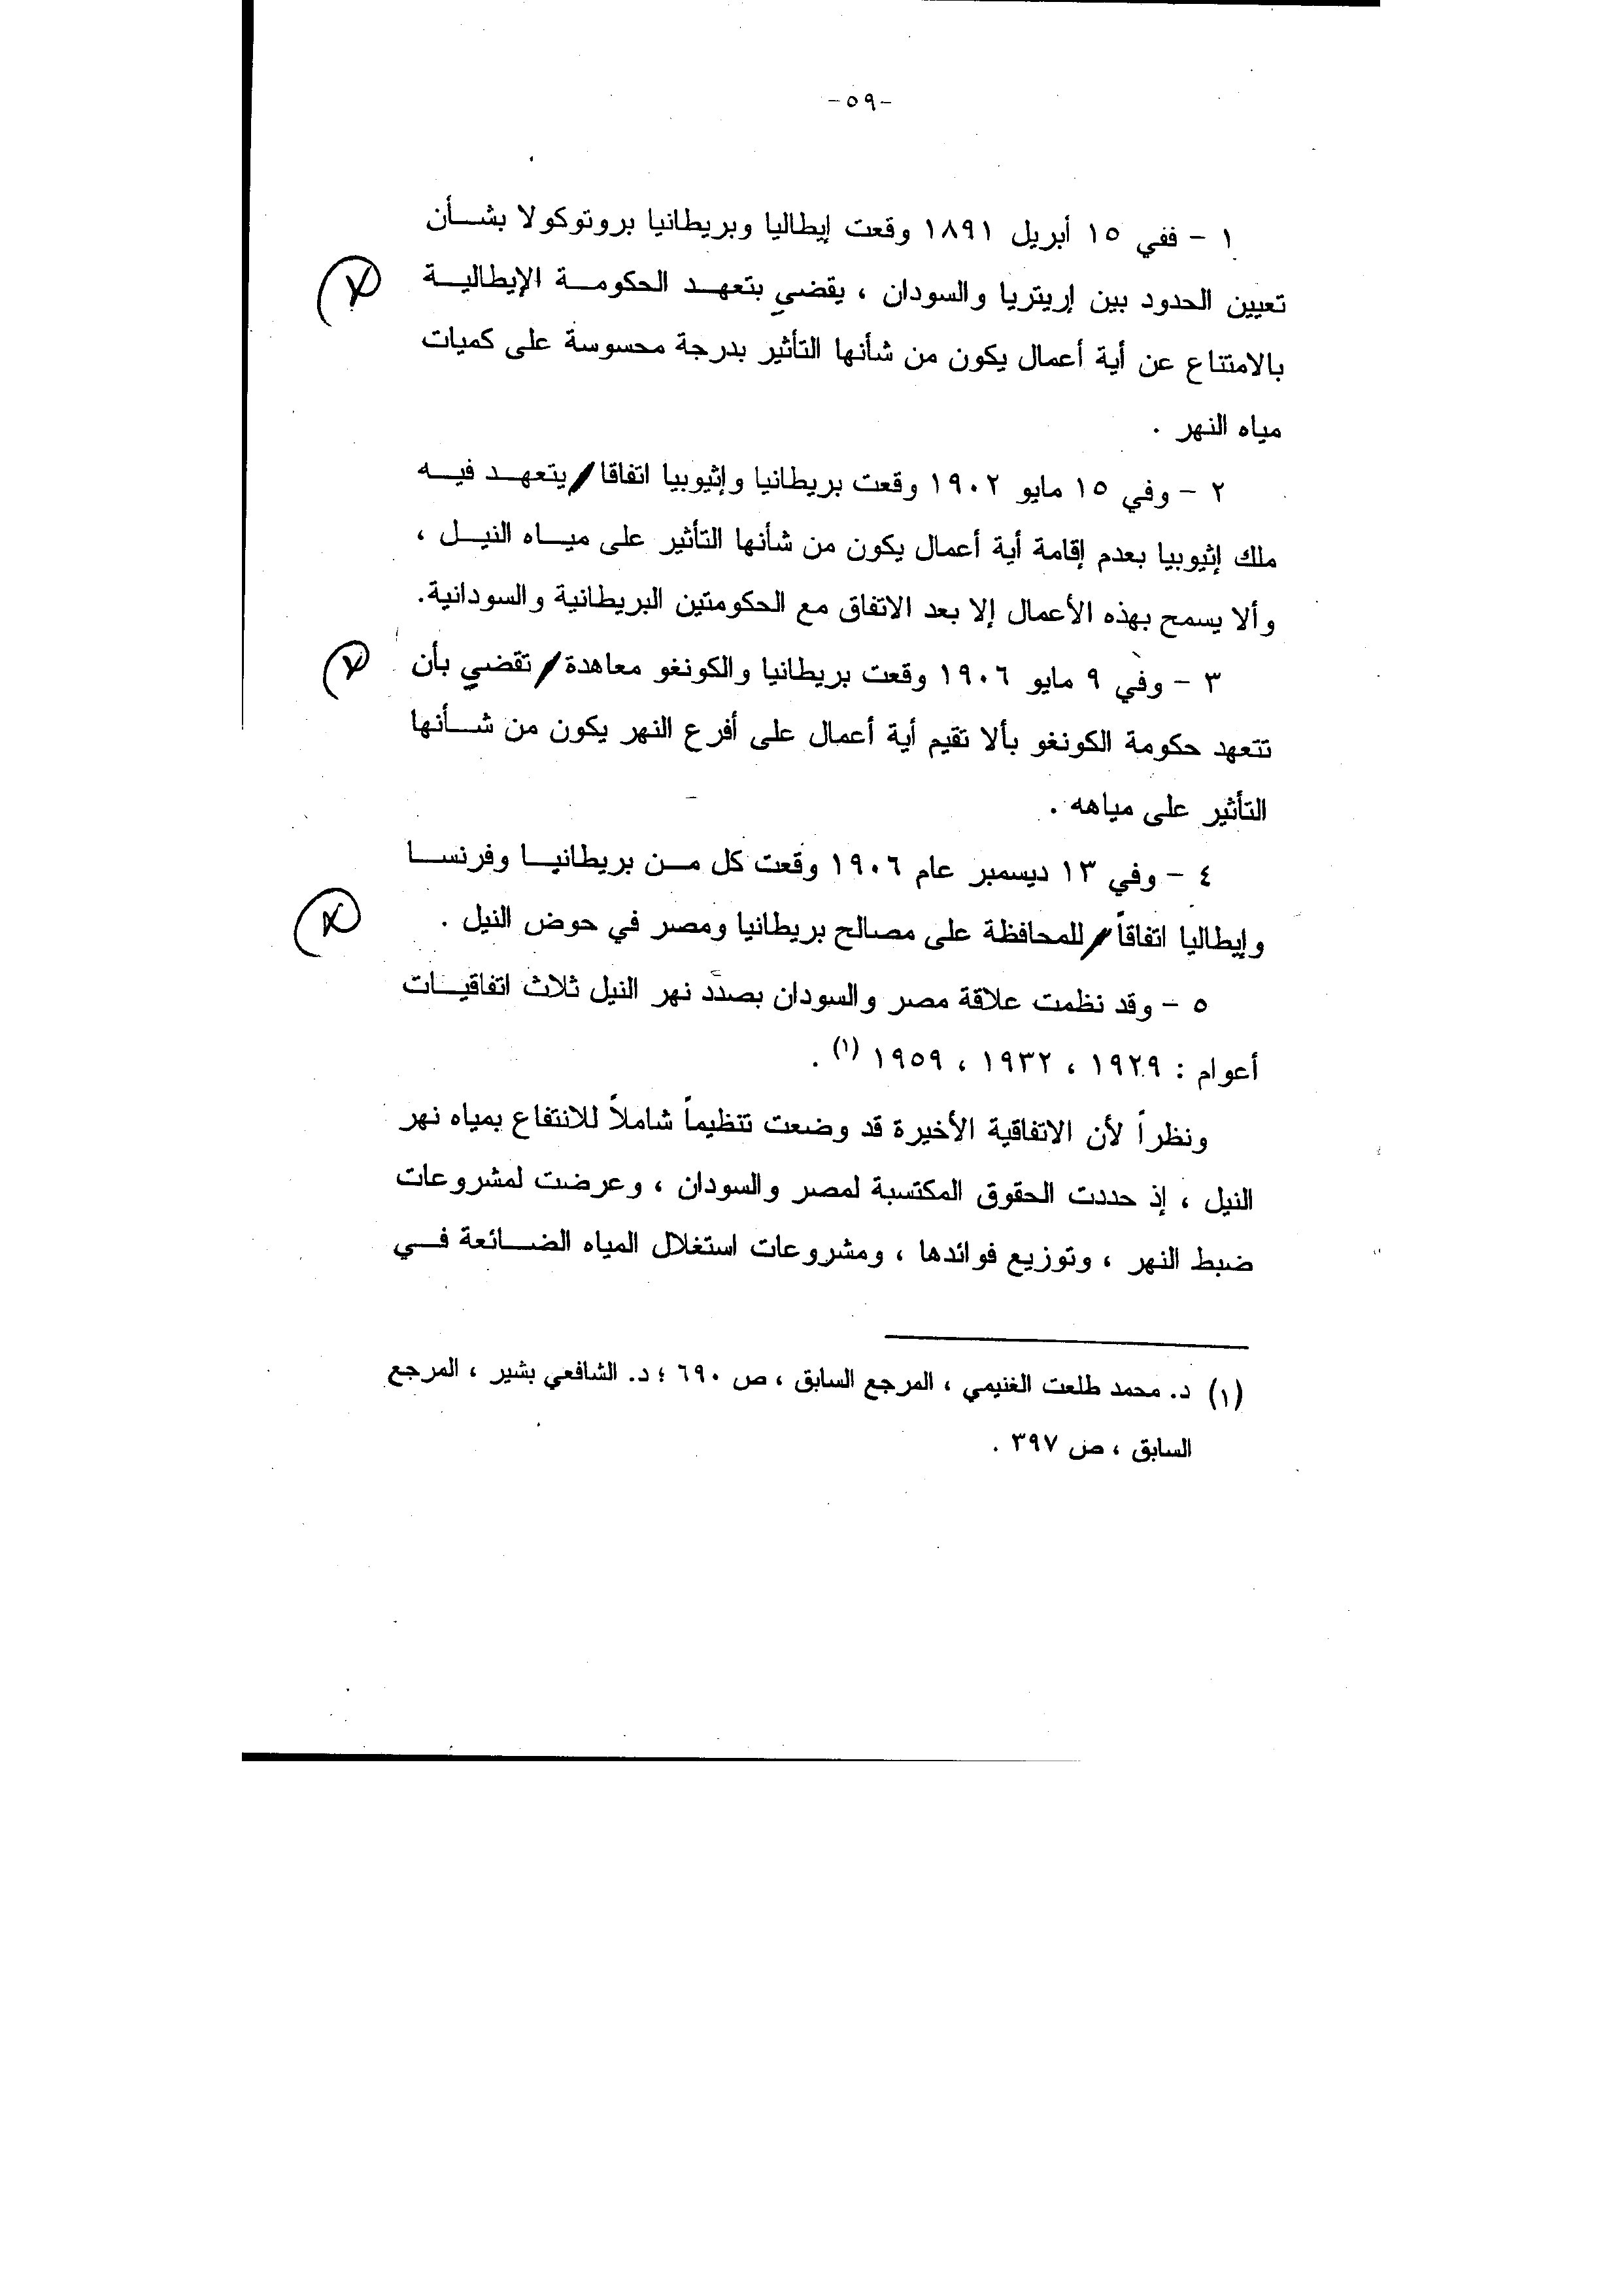 -٥٩-
١ - ففي ١٥ أبريل ١٨٩١ وقعت إيطاليا وبريطانيا بروتوكولا بشأن
تعيين الحدود بين إريتريا والسودان ، يقضي بتعهد الحكومة الإيطالية
بالامتناع عن أية أعمال يكون من شأنها التأثير بدرجة محسوسة على كميات
مياه النهر .
٢ - وفي ١٥ مايو ١٩٠٢ وقعت بريطانيا وإثيوبيا اتفاقا / يتعهد فيه
ملك إثيوبيا بعدم إقامة أية أعمال يكون من شأنها التأثير على مياه النيل ،
وألا يسمح بهذه الأعمال إلا بعد الاتفاق مع الحكومتين البريطانية والسودانية.
٣ - وفي ٩ مايو ١٩٠٦ وقعت بريطانيا والكونغو معاهدة / تقضي بأن
تتعهد حكومة الكونغو بألا تقيم أية أعمال على أفرع النهر يكون من شأنها
التأثير على مياهه .
٤ - وفي ١٣ ديسمبر عام ١٩٠٦ وقعت كل من بريطانيا وفرنسا
وإيطاليا اتفاقاً / للمحافظة على مصالح بريطانيا ومصر في حوض النيل .
٥ - وقد نظمت علاقة مصر والسودان بصدد نهر النيل ثلاث اتفاقيات
أعوام : ١٩٢٩ ، ١٩٣٢ ، ١٩٥٩ (١) .
ونظراً لأن الاتفاقية الأخيرة قد وضعت تنظيماً شاملاً للانتفاع بمياه نهر
النيل ، إذ حددت الحقوق المكتسبة لمصر والسودان ، وعرضت لمشروعات
ضبط النهر ، وتوزيع فوائدها ، ومشروعات استغلال المياه الضائعة في
(١) د. محمد طلعت الغنيمي ، المرجع السابق ، ص ٦٩٠ ؛ د. الشافعي بشير ، المرجع
السابق ، ص ٣٩٧ .